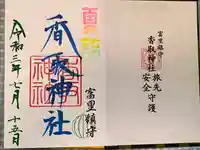 富里鎮守
香取神社
令和三年七月十五日
富里鎮守
香取神社
旅先
安全守護